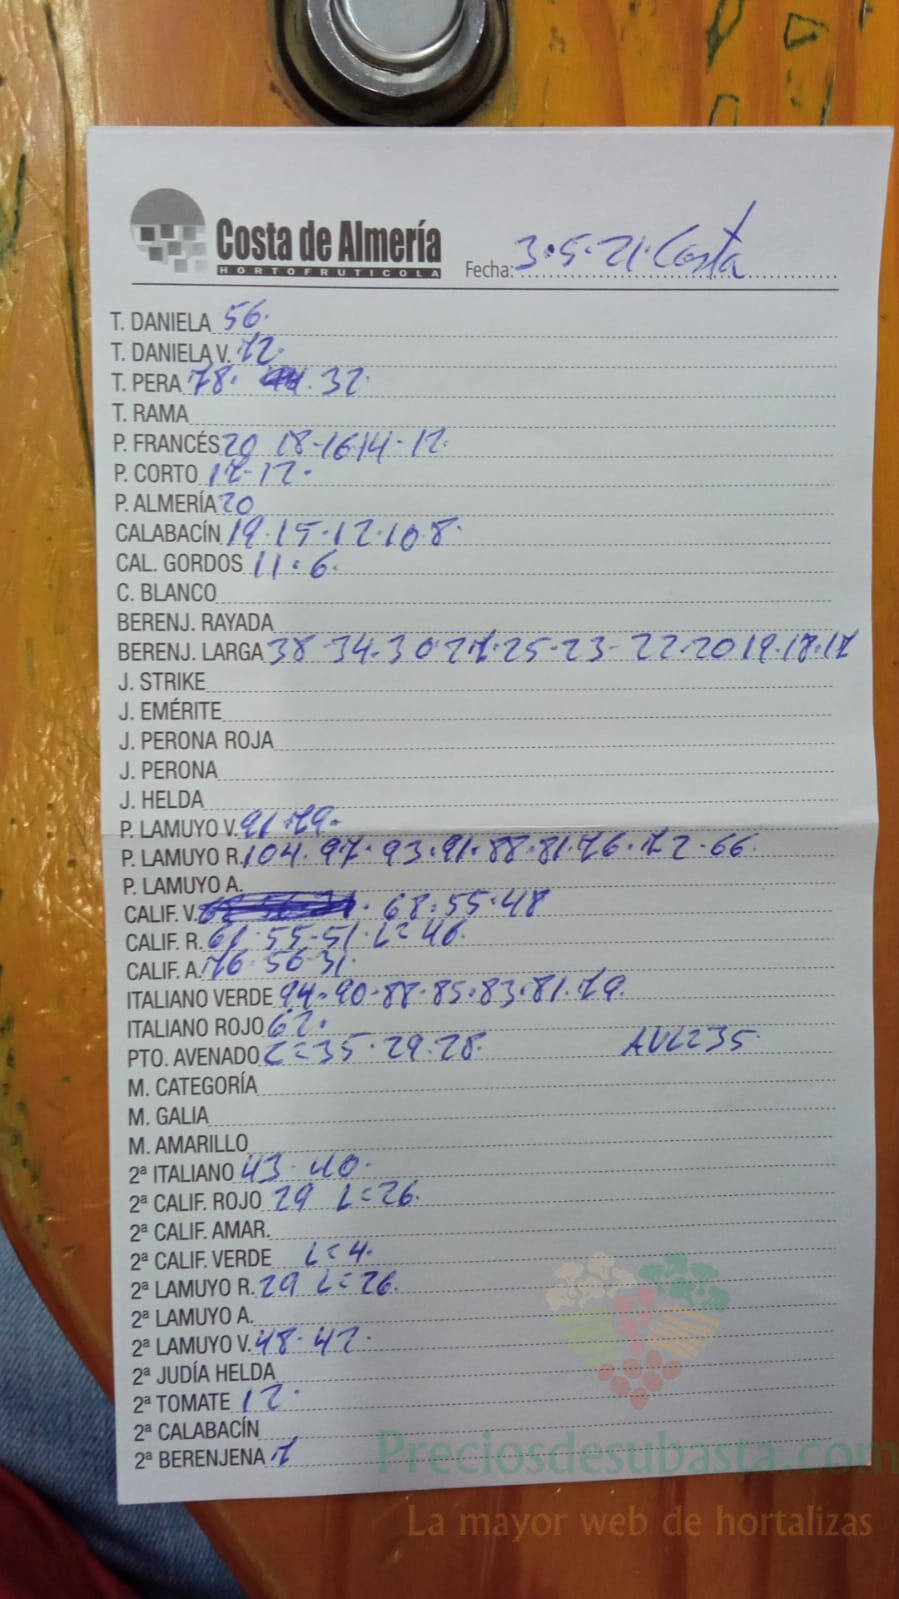 Costa de Almería
HORTOFRUTICOLA
Fecha: 3·5·21·Costa
T. DANIELA 56·
T. DANIELA V. 72·
T. PERA 78· 32·
T. RAMA
P. FRANCÉS 20 18-16 14-12·
P. CORTO 17-12·
P. ALMERÍA 20
CALABACÍN 19·15·12·10·8·
CAL. GORDOS 11·6·
C. BLANCO
BERENJ. RAYADA
BERENJ. LARGA 38 34·30 27·25-23-22·20 19·18·17
J. STRIKE
J. EMÉRITE
J. PERONA ROJA
J. PERONA
J. HELDA
P. LAMUYO V. 91·79·
P. LAMUYO R. 104·97·93·91·88·81·76·72·66·
P. LAMUYO A.
CALIF. V. · 68·55·48
CALIF. R. 61·55-51·L=46·
CALIF. A. 76·56-31·
ITALIANO VERDE 94·90·88·85·83·81·79·
ITALIANO ROJO 62·
PTO. AVENADO L=35·29·28· 35·
M. CATEGORÍA
M. GALIA
M. AMARILLO
2ª ITALIANO 43·40·
2ª CALIF. ROJO 29 L=26·
2ª CALIF. AMAR.
2ª CALIF. VERDE L=4·
2ª LAMUYO R. 29 L=26·
2ª LAMUYO A.
2ª LAMUYO V. 48·42·
2ª JUDÍA HELDA
2ª TOMATE 12·
2ª CALABACÍN
2ª BERENJENA 7
Preciosdesubasta.com
La mayor web de hortalizas